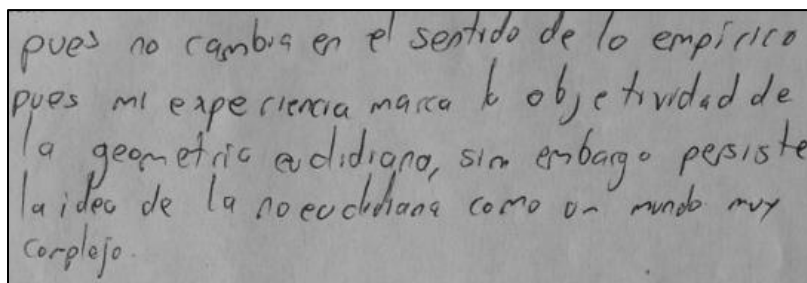 pues no cambia en el sentido de lo empírico
pues mi experiencia marca la objetividad de
la geometria euclidiana, sin embargo persiste
la idea de la no euclidiana como un mundo muy
complejo.